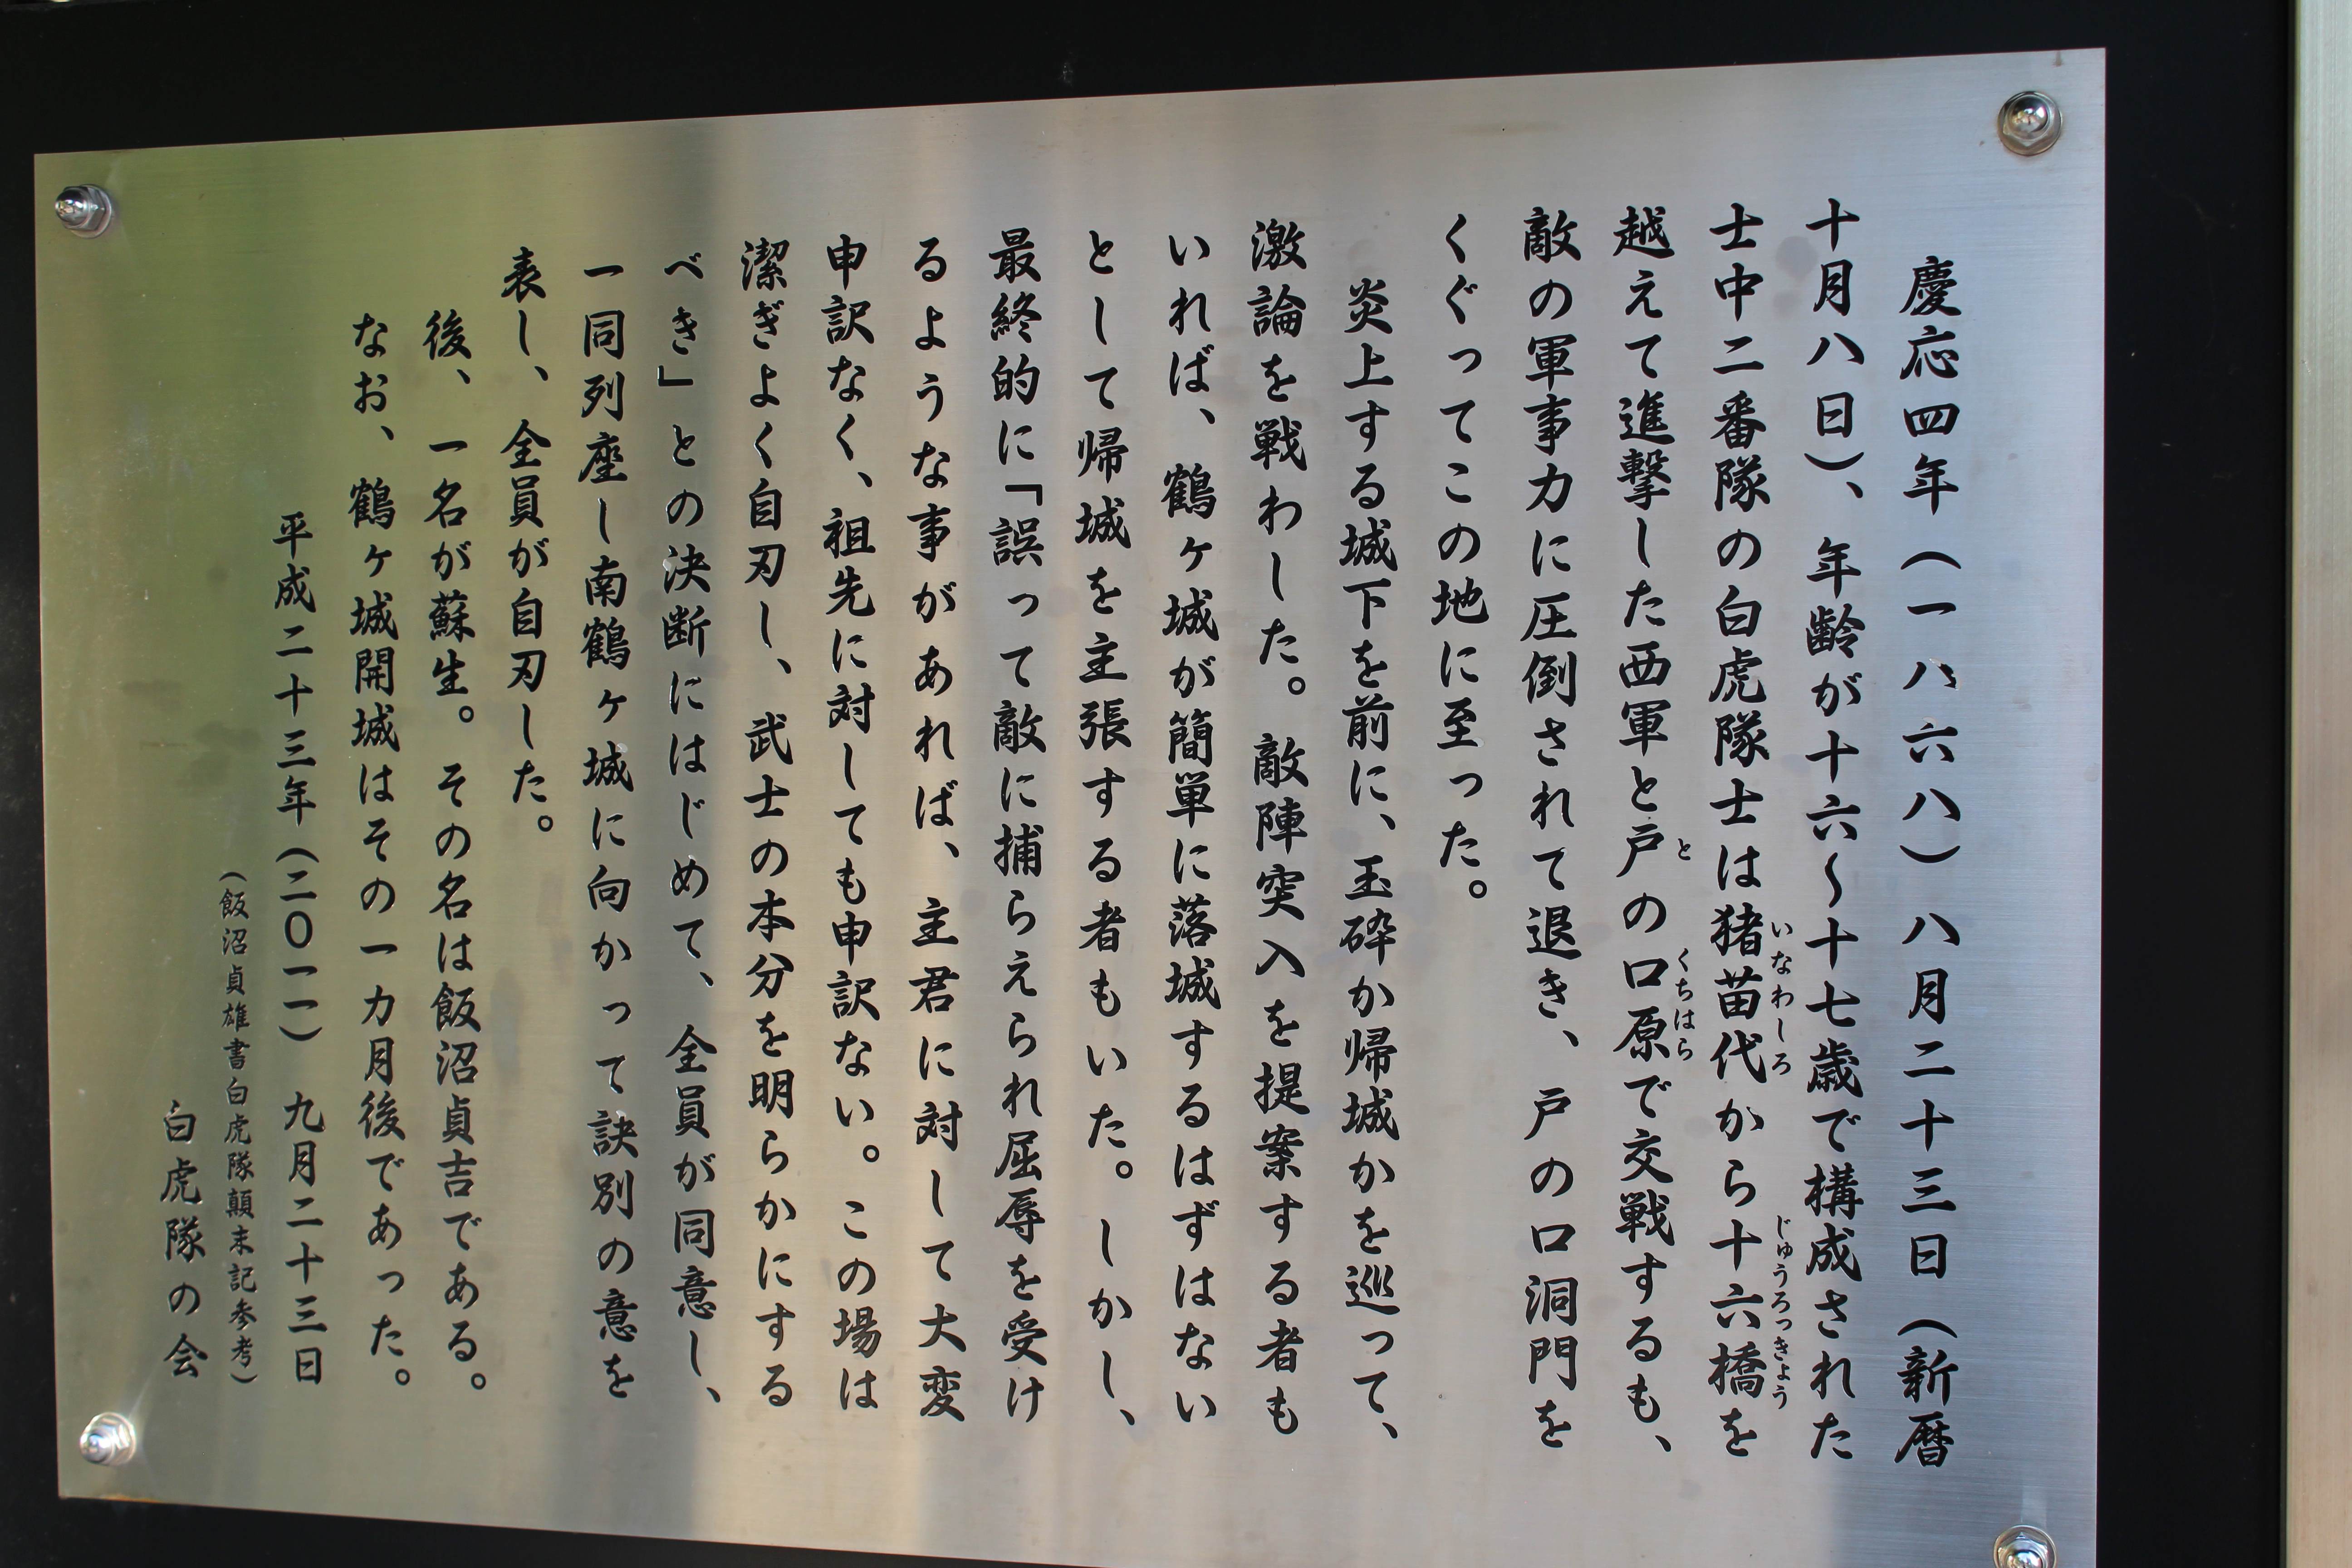 慶応四年（一八六八）八月二十三日（新暦
十月八日）、年齢が十六〜十七歳で構成された
士中二番隊の白虎隊士は猪苗代から十六橋を
いなわしろ
じゅうろっきょう
越えて進撃した西軍と戸の口原で交戦するも、
と
くちはら
敵の軍事力に圧倒されて退き、戸の口洞門を
くぐってこの地に至った。
炎上する城下を前に、玉砕か帰城かを巡って、
激論を戦わした。敵陣突入を提案する者も
いれば、鶴ヶ城が簡単に落城するはずはない
として帰城を主張する者もいた。しかし、
最終的に「誤って敵に捕らえられ屈辱を受け
るような事があれば、主君に対して大変
申訳なく、祖先に対しても申訳ない。この場は
潔ぎよく自刃し、武士の本分を明らかにする
べき」との決断にはじめて、全員が同意し、
一同列座し南鶴ヶ城に向かって訣別の意を
表し、全員が自刃した。
後、一名が蘇生。その名は飯沼貞吉である。
なお、鶴ヶ城開城はその一カ月後であった。
平成二十三年（二〇一一）九月二十三日
（飯沼貞雄書白虎隊顛末記参考）
白虎隊の会